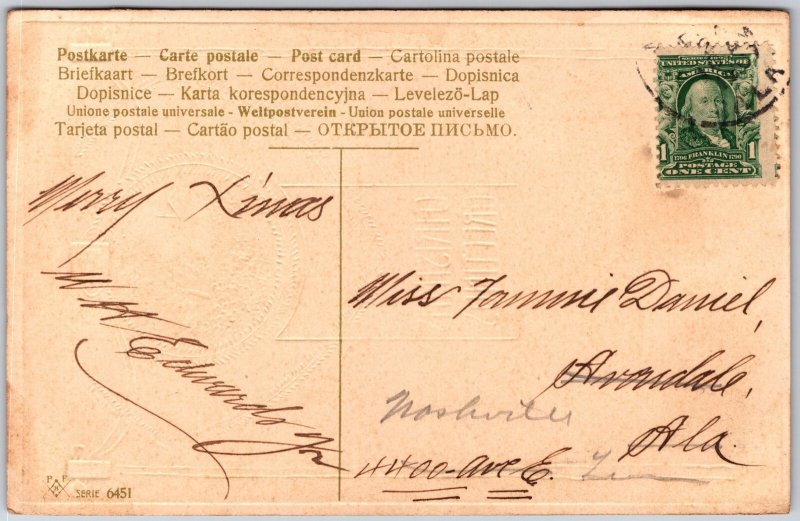 Postkarte — Carte postale — Post card — Cartolina postale
Briefkaart — Brefkort — Correspondenzkarte — Dopisnica
Dopisnice — Karta korespondencyjna — Levelező-Lap
Unione postale universale - Weltpostverein - Union postale universelle
Tarjeta postal — Cartão postal — ОТКРЫТОЕ ПИСЬМО.
SERIES 1902
UNITED STATES OF
AMERICA
1706 FRANKLIN 1790
1 POSTAGE 1
ONE CENT
LA
Merry Xmas
W W Edwards Jr
Miss Tommie Daniel,
Avondale,
Nashville
Ala.
4400-Ave E.
Ten
P F
SERIE 6451